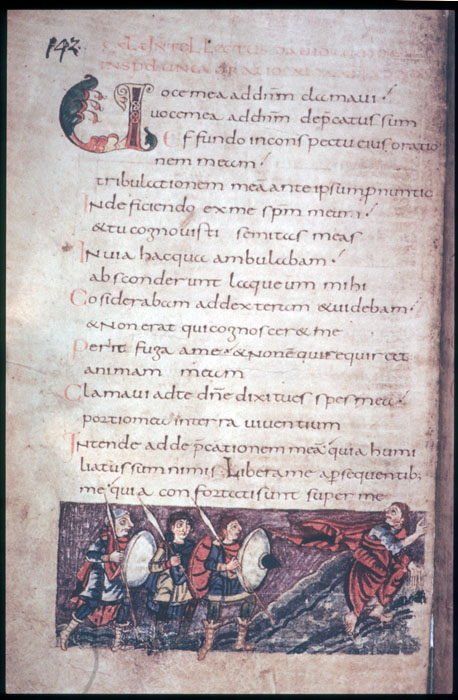 142.
INTELLECTUS
IN SPELUNCA ORATIO
Uoce mea ad dn̄m clamavi
uoce mea ad dn̄m dep̄catus sum
Effundo in conspectu eius oratio
nem meam
tribulationem meā ante ipsum pnuntio
In deficiendo ex me spm̄ meum
& tu cognovisti semitas meas
In via hac qua ambulabam
absconderunt laqueum mihi
Cosiderabam ad dexteram & videbam
& non erat qui cognoscer& me
Periit fuga a me & non ē qui requirat
animam meam
Clamavi ad te dn̄e dixi tu es spes mea
portio mea in terra viventium
Intende ad dep̄cationem meā quia humi
liatus sum nimis Libera me a psequentib;
me quia confortati sunt super me